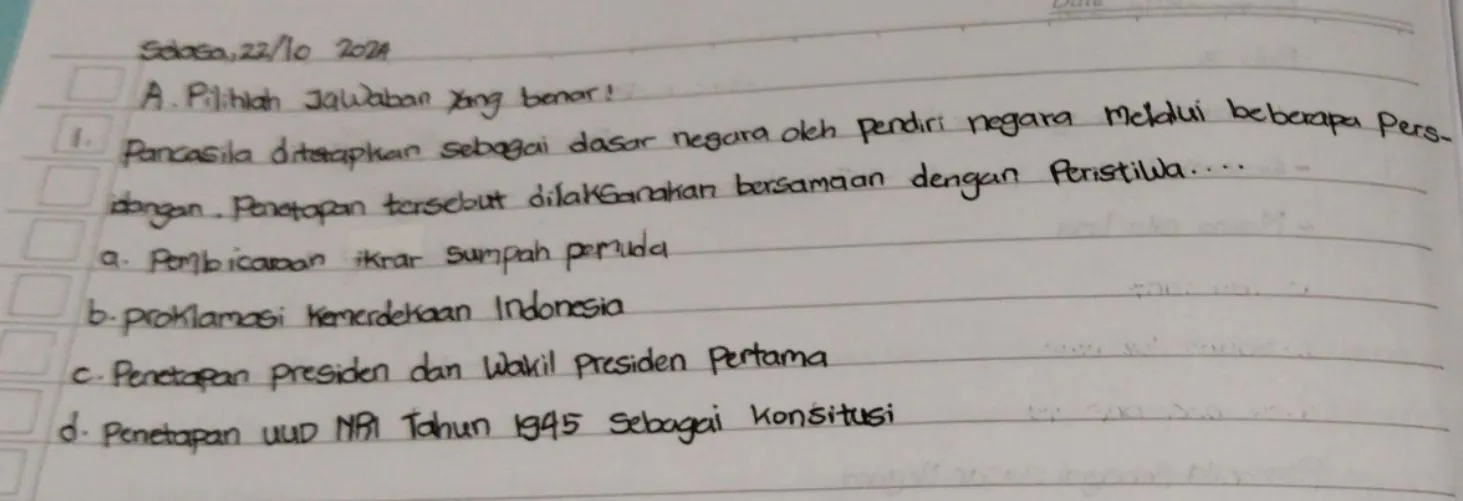 Selasa, 22/10 2024
A. Pilihlah Jawaban yang benar!
1. Pancasila ditetapkan sebagai dasar negara oleh pendiri negara melalui beberapa Pers-
idangan. Penetapan tersebut dilaksanakan bersamaan dengan Peristiwa....
a. Pembicaraan ikrar sumpah pemuda
b. proklamasi kemerdekaan Indonesia
c. Penetapan presiden dan wakil presiden Pertama
d. Penetapan UUD NRI Tahun 1945 Sebagai Konsitusi